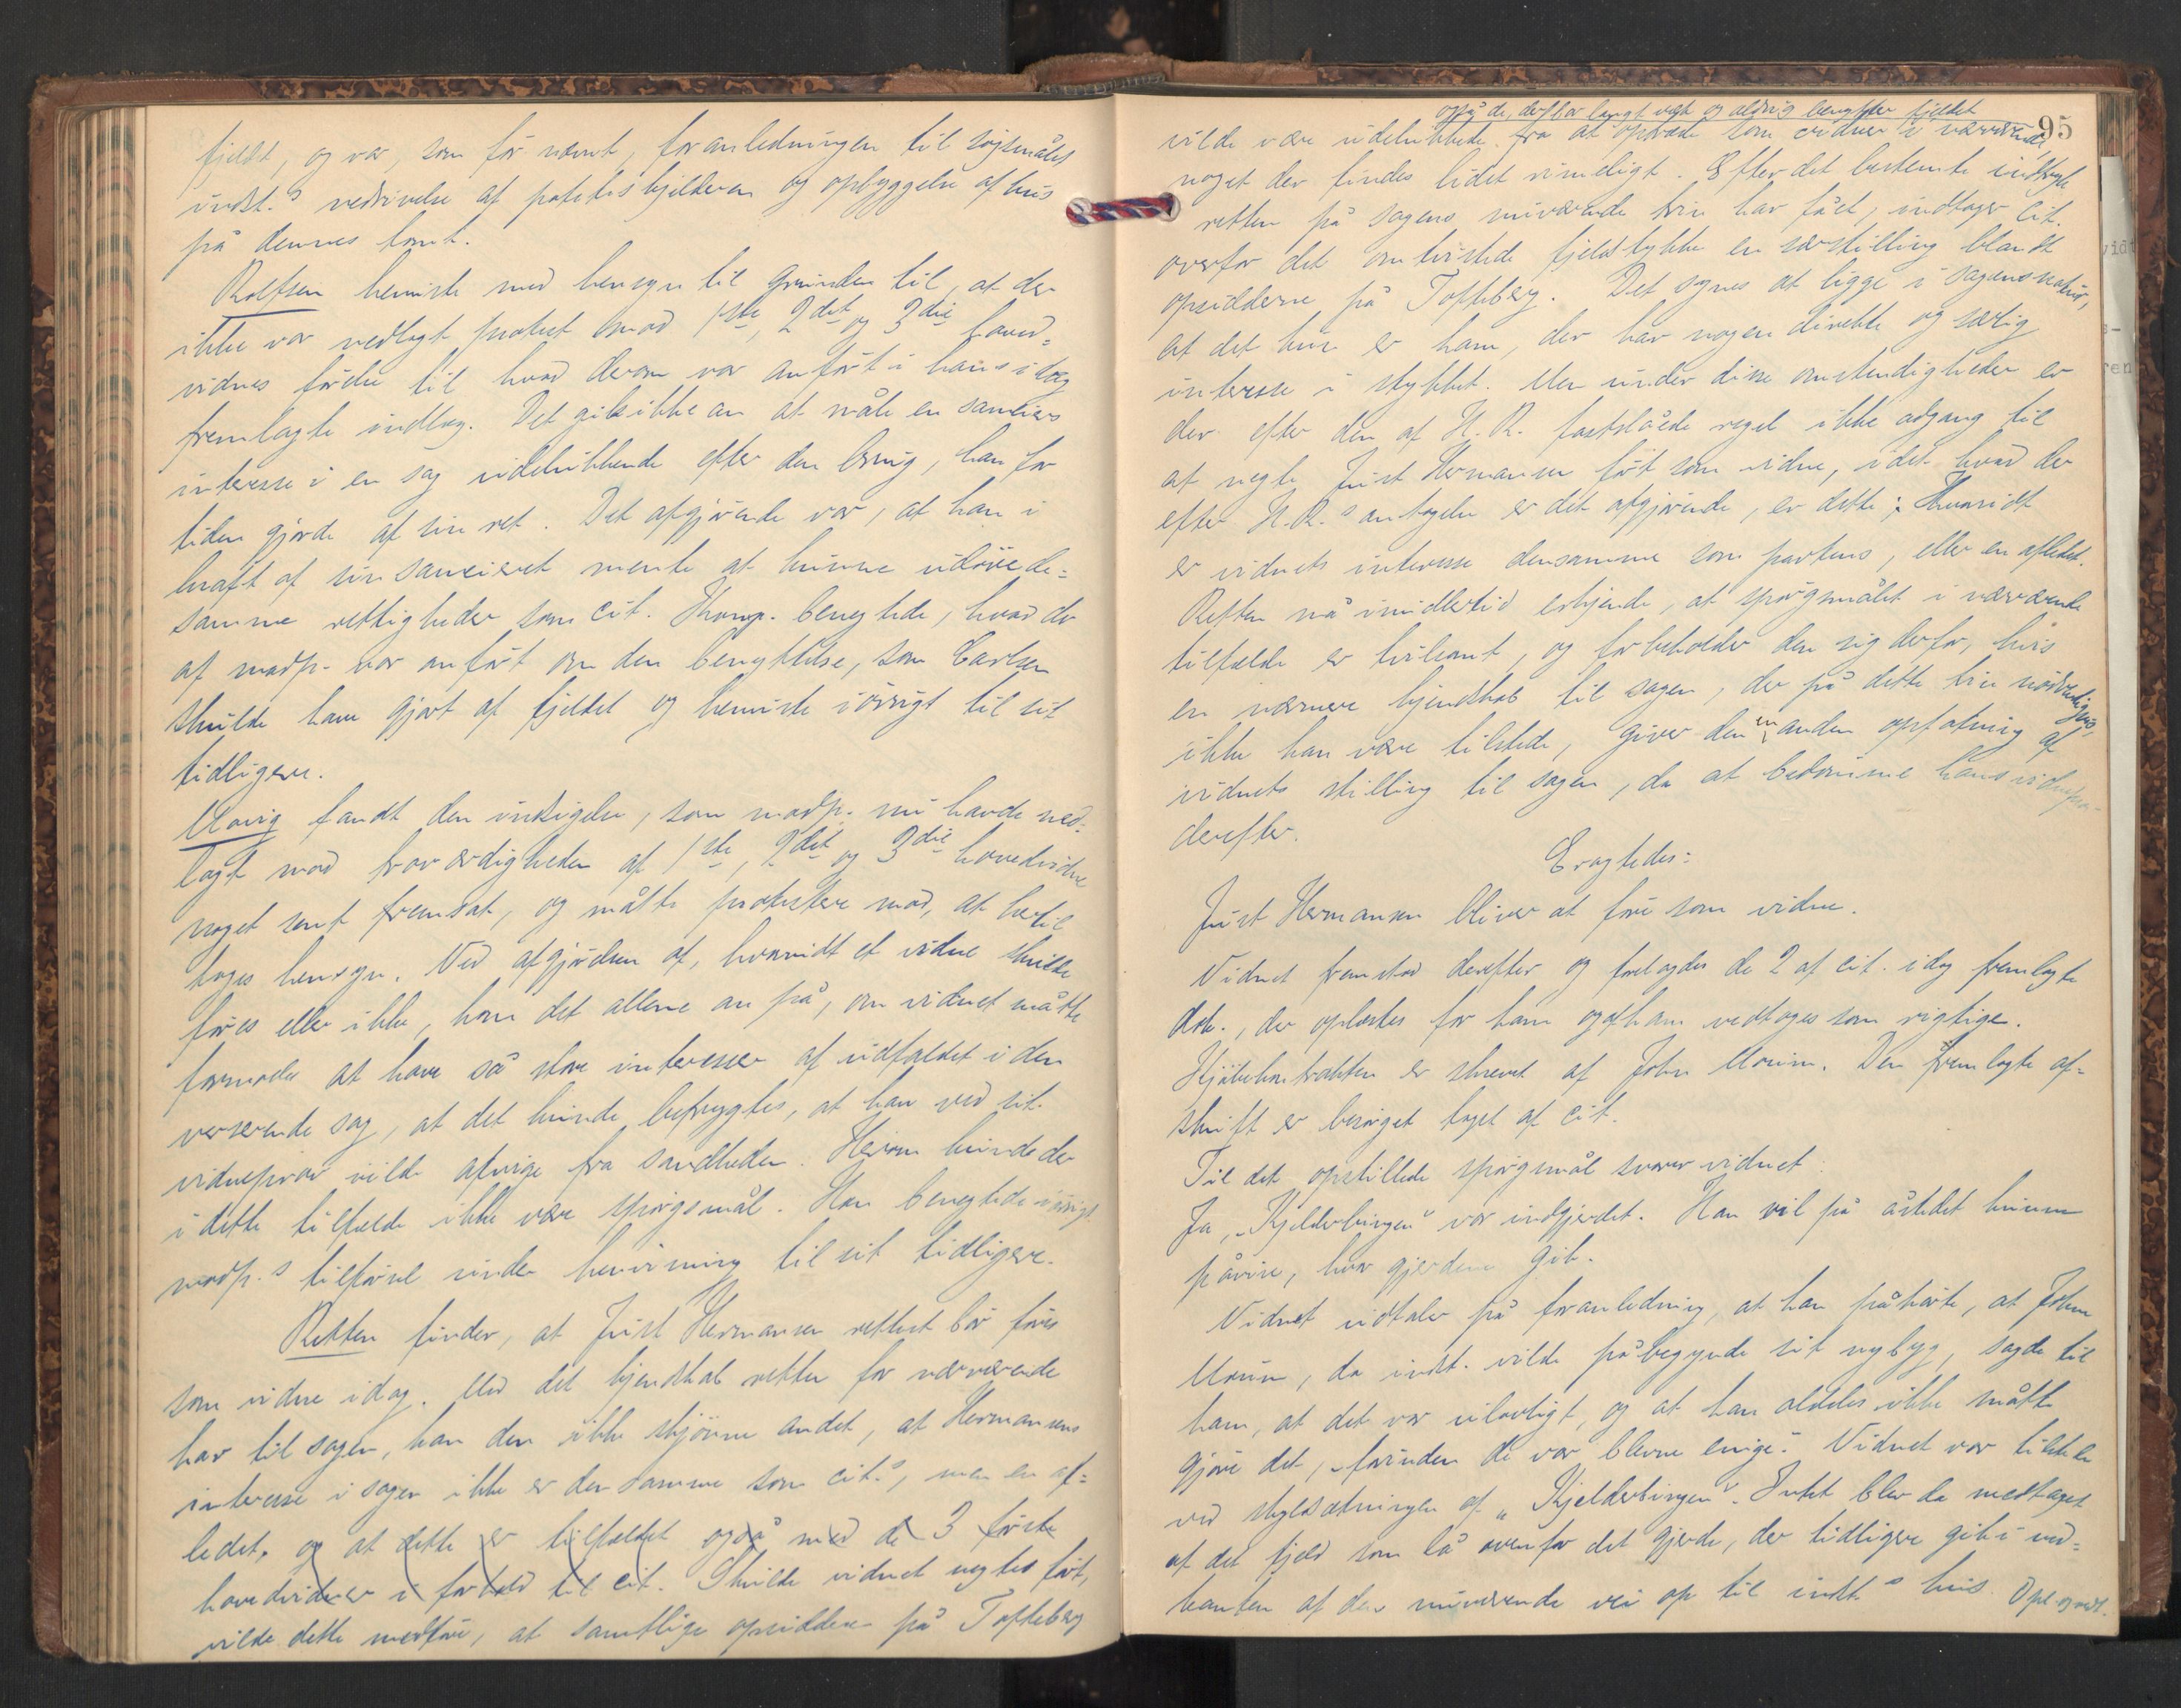 fjeldet, og var, som før nævnt, foranledningen til søgsmålet
indst.s nedrivelse af potetkjelderen og opbyggelse af hus
på dennes tomt.
Rolfsen henviste med hensyn til grunden til, at der
ikke var nedlagt protest mod 1ste, 2det og 3die hoved-
vidnes førelse til hvad derom var anført i hans idag
fremlagte indlæg. Det gik ikke an at måle en sameiers
interesse i en sag udelukkende efter den brug, han for
tiden gjorde af sin ret. Det afgjørende var, at han i
kraft af sin sameieret mente at kunne udøve de-
samme rettigheder som cit. Komp. benegtede, hvad der
af modp. var anført om den benyttelse, som Carlsen
skulde have gjort af fjeldet og henviste iøvrigt til sit
tidligere.
Movig fandt den indsigelse, som modp. nu havde ned-
lagt mod troværdigheden af 1ste, 2det og 3die hovedvidne
noget sent fremsat, og måtte protestere mod, at hertil
toges hensyn. Ved afgjørelsen af, hvorvidt et vidne skulde
føres eller ikke, kom det allene an på, om vidnet måtte
formodes at have så store interesser af udfaldet i den
verserende sag, at det kunde befrygtes, at han ved sit
vidneprov vilde afvige fra sandheden. Herom kunde der
i dette tilfælde ikke være spørgsmål. Han benegtede iøvrigt
modp.s tilførsel under henvisning til sit tidligere.
Retten finder, at Just Hermansen rettest bør føres
som vidne idag. Med det kjendskab retten for nærværende
har til sagen, kan den ikke skjønne andet, at Hermansens
interesse i sagen ikke er den samme som cit.s, men en af-
ledet, og at dette er tilfældet også med de 3 første
hovedvidner i forhold til cit. Skulde vidnet negtes ført,
vilde dette medføre, at samtlige opsiddere på Tofteberg
95
også de, der bor langt væk og aldrig benytter fjeldet
vilde være udelukkede fra at optræde som vidner i nærværende
noget der findes lidet rimeligt. Efter det bestemte indtryk
retten på sagens nuværende trin har fået, indtager cit.
overfor det omtvistede fjeldstykke en særstilling blandt
opsidderne på Tofteberg. Det synes at ligge i sagens natur,
at det kun er ham, der har nogen direkte og særlig
interesse i stykket. Men under disse omstendigheder er
der efter den af H. R. fastslåede regel ikke adgang til
at negte Just Hermansen ført som vidne, idet hvad der
efter H.R.s antagelse er det afgjørende, er dette: Hvorvidt
er vidnets interesse densamme som partens, eller en afledet.
Retten må imidlertid erkjende, at spørgsmålet i nærværende
tilfælde er tvilsomt, og forbeholder den sig derfor, hvis
en nærmere kjendskab til sagen, der på dette trin nødvendigvis
ikke kan være tilstede, giver den en anden opfatning af
vidnets stilling til sagen, da at bedømme hans vidneprov
derefter.
Eragtedes:
Just Hermansen bliver at føre som vidne.
Vidnet fremstod derefter og forelagdes de 2 af cit. idag fremlagte
dok., der oplæstes for ham og af ham vedtoges som rigtige.
Kjøbekontrakten er skrevet af John Mouum. Den fremlagte af-
skrift er besørget taget af cit.
Til det opstillede spørgsmål svarer vidnet:
Ja, "Kjelderbingen" var indgjerdet. Han vil på åstedet kunne
påvise, hvor gjerdene gik.
Vidnet udtaler på foranledning, at han påhørte, at John
Mouum, da indst. vilde påbegynde sit nybyg, sagde til
ham, at det var ulovligt, og at han aldeles ikke måtte
gjøre det, "førinden de var blevne enige". Vidnet var tilstede
ved skylsætningen af "Kjelderbingen". Intet blev da medtaget
af det fjeld som lå ovenfor det gjerde, der tidligere gik i ned-
kanten af den nuværende vei op til indst.s hus. Opl. vedt.